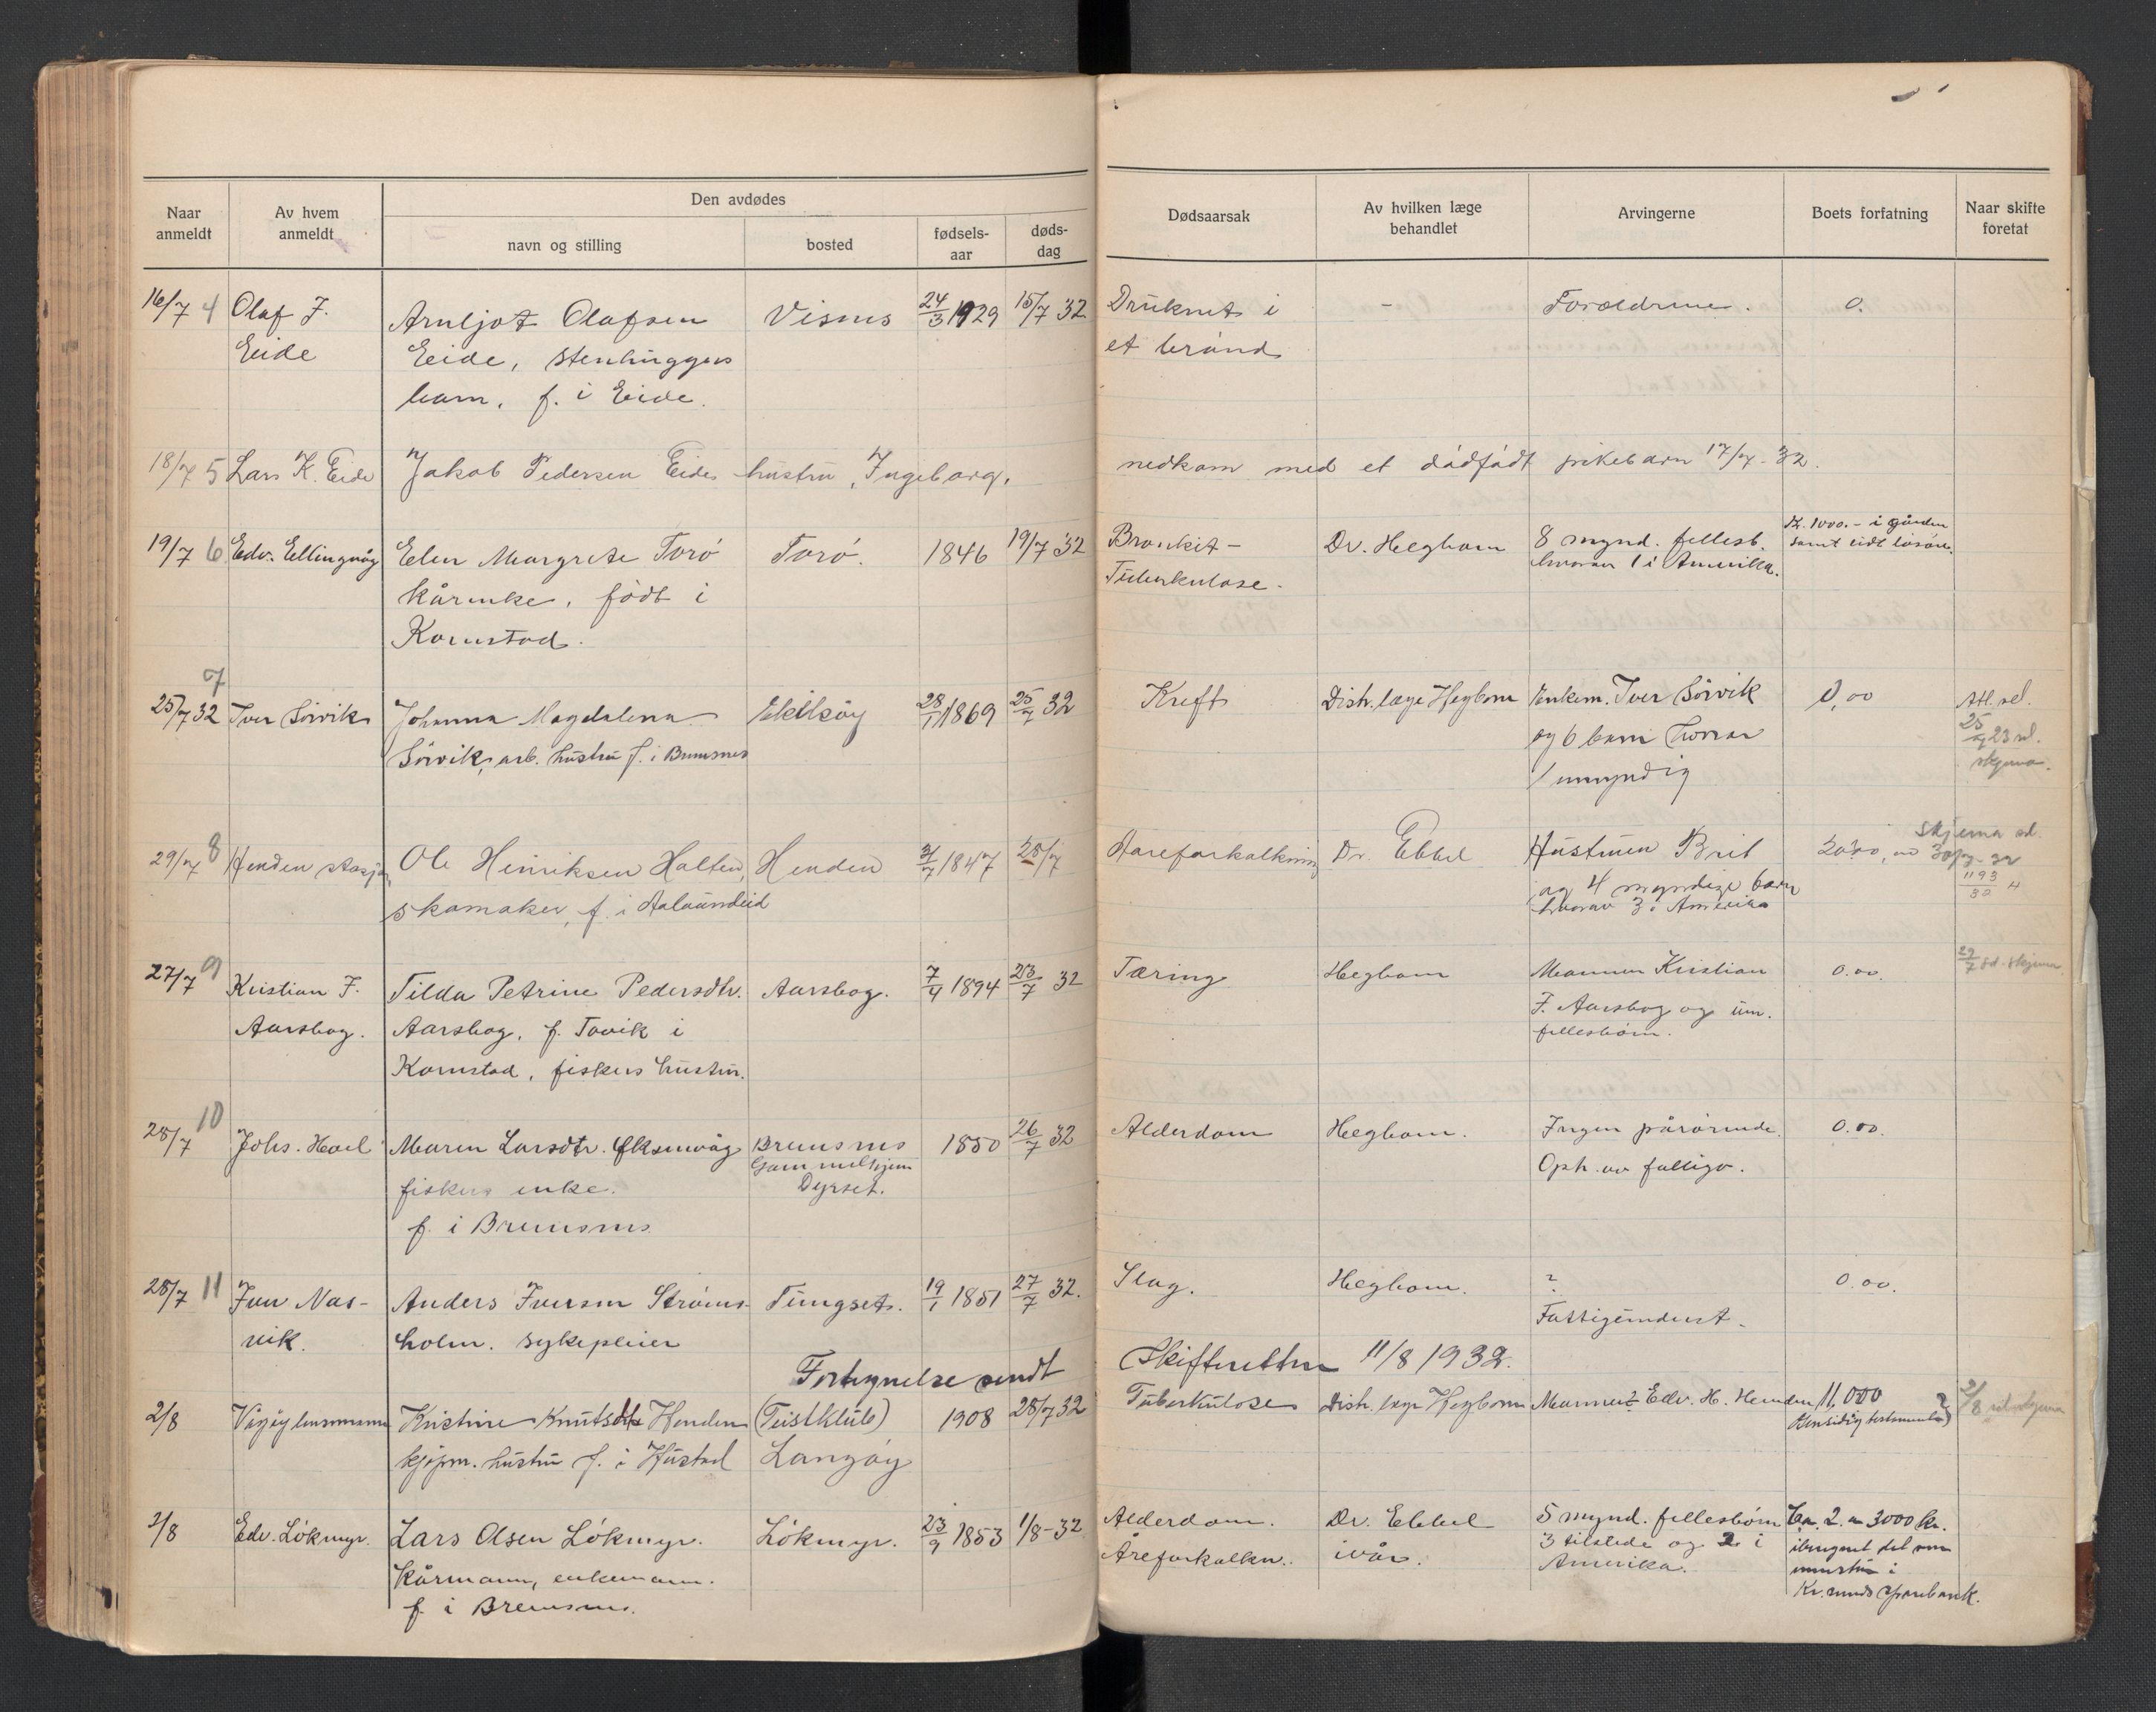 Naar anmeldt
Av hvem anmeldt
Den avdødes
navn og stilling
bosted
fødsels-aar
døds-dag
Dødsaarsak
Av hvilken læge behandlet
Arvingerne
Boets forfatning
Naar skifte foretat
16/7 4 Olaf J. Arnljot Olafsen Visnes 24/3 1929 15/7 32 Druknet i - Forældrene. 0.
Eide Eide, stenhuggers et brønd
barn, f. i Eide.
18/7 5 Lars K. Eide Jakob Pedersen Eides hustru, Ingeborg, nedkom med et dødfødt pikebarn 17/7-32.
19/7 6 Edv. Ellingvåg Elen Margrete Torø Torø. 1846 19/7 32 Bronkit- Dr. Hegbom 8 mynd. fellesb. Kr. 1000.- i gården
kårenke, født i Tuberkulose. hvorav 1 i Amerika. samt lidt løsøre.
Kornstad.
7
25/7 32 Iver Sørvik Johanna Magdalena Ekilsøy 28/11 1869 25/7 32 Kreft Distr. læge Hegbom Enkem. Iver Sørvik 0,00
Sørvik, arb. hustru f. i Bremsnes og 6 barn hvorav 25/7 23 sd.
1 umyndig skjema.
29/7 8 Henden stasjon Ole Henriksen Holten, Henden 1847 28/7 Aareforkalkning Dr. Ebbel Hustruen Brit skjema sd.
skomaker, f. i Aalvundeid og 4 myndige barn 1193/32
hvorav 3 i Amerika
27/7 9 Kristian F. Tilda Petrine Pedersdtr. Aarsbog. 7/4 1894 23/7 32 Tæring Hegbom Mannen Kristian 0.00. 29/7 sd. skjema.
Aarsbog. Aarsbog, f. Tovik i F. Aarsbog og um.
Kornstad, fiskers hustru. fellesbørn.
28/7 10 Johs. Hoel Maren Larsdtr. Øksenvåg Bremsnes 1850 26/7 32 Alderdom Hegbom. Ingen pårørende. 0.00.
fiskers enke. Gammelhjem Oph. av fattigv.
f. i Bremsnes Dyrset.
28/7 11 Jon Nas- Anders Iversen Strøms- Tungset. 19/1 1851 27/7 32. Slag. Hegbom. ? 0.00.
vik. holm. sykepleier Fattigunderst.
Fortegnelse sendt Skifteretten 11/8 1932.
2/8 Visiglensmannen Kristine Knutsdtr Henden (Tustklub) 1908 28/7 32 Tuberkulose Distr. læge Hegbom Mannen Edv. H. Henden 11,000 ?
kjøpm. hustru f. i Hustad Langøy (Gensidig testament) 2/8 sd. skjema
2/8 Edv. Løkmyr. Lars Olsen Løkmyr. Løkmyr. 23/9 1853 1/8-32 Alderdom. Dr. Ebbel 5 mynd. fellesbørn Ca. 2 a 3000 kr.
Kårmann, enkemann. Åreforkalkn. ivår. 3 tilstede og 2 i iberegnet det som
f. i Bremsnes. Amerika. innestår i
Kr.sunds sparebank.